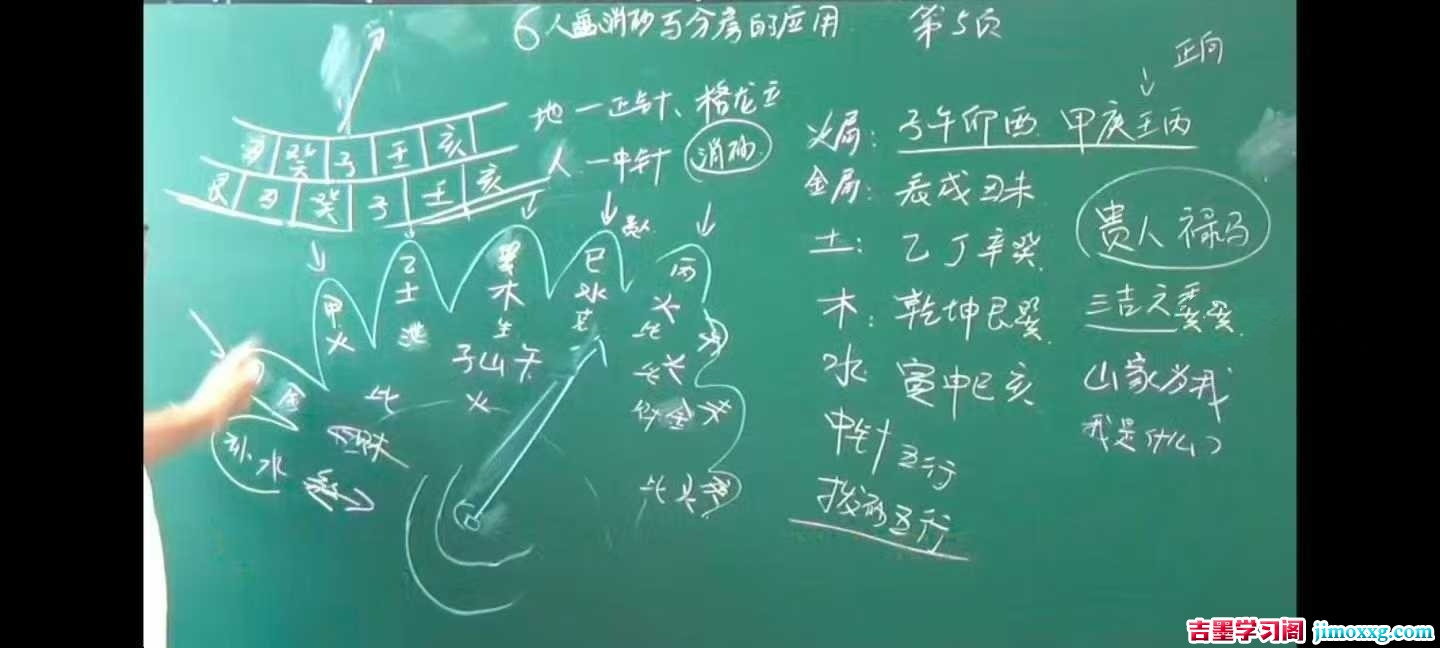 6 人盘消砂与分房的应用 第5页
正向
地一正针、格龙立
人一中针 消砂
丑 癸 子 壬 亥
艮 丑 癸 子 壬 亥
火局: 子午卯酉 甲庚壬丙
金局: 辰戌丑未
土: 乙丁辛癸
木: 乾坤艮巽
水: 寅申巳亥
中针五行
拨砂五行
贵人 禄马
三吉六秀
山家为我
我是什么?
甲 火
乙 土 泄
巽 木 生
巳 水 煞
丙 火 比
子山午
火
比
金
水
财金
吉墨学习阁 jimoxxg.com